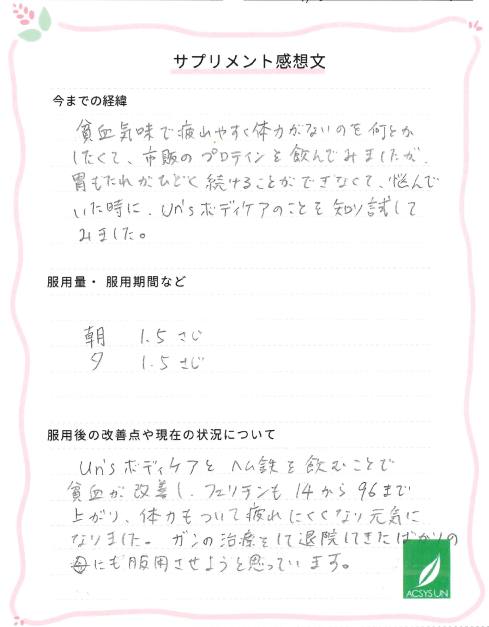 サプリメント感想文
今までの経緯
貧血気味で疲れやすく体力がないのを何とか
したくて、市販のプロテインを飲んでみましたが、
胃もたれがひどく続けることができなくて、悩んで
いた時に、Un'sボディケアのことを知り試して
みました。
服用量・服用期間など
朝 1.5さじ
夕 1.5さじ
服用後の改善点や現在の状況について
Un'sボディケアとヘム鉄を飲むことで
貧血が改善し、フェリチンも14から96まで
上がり、体力もついて疲れにくくなり元気に
なりました。ガンの治療をして退院してきたばかりの
母にも服用させようと思っています。
ACSYS UN